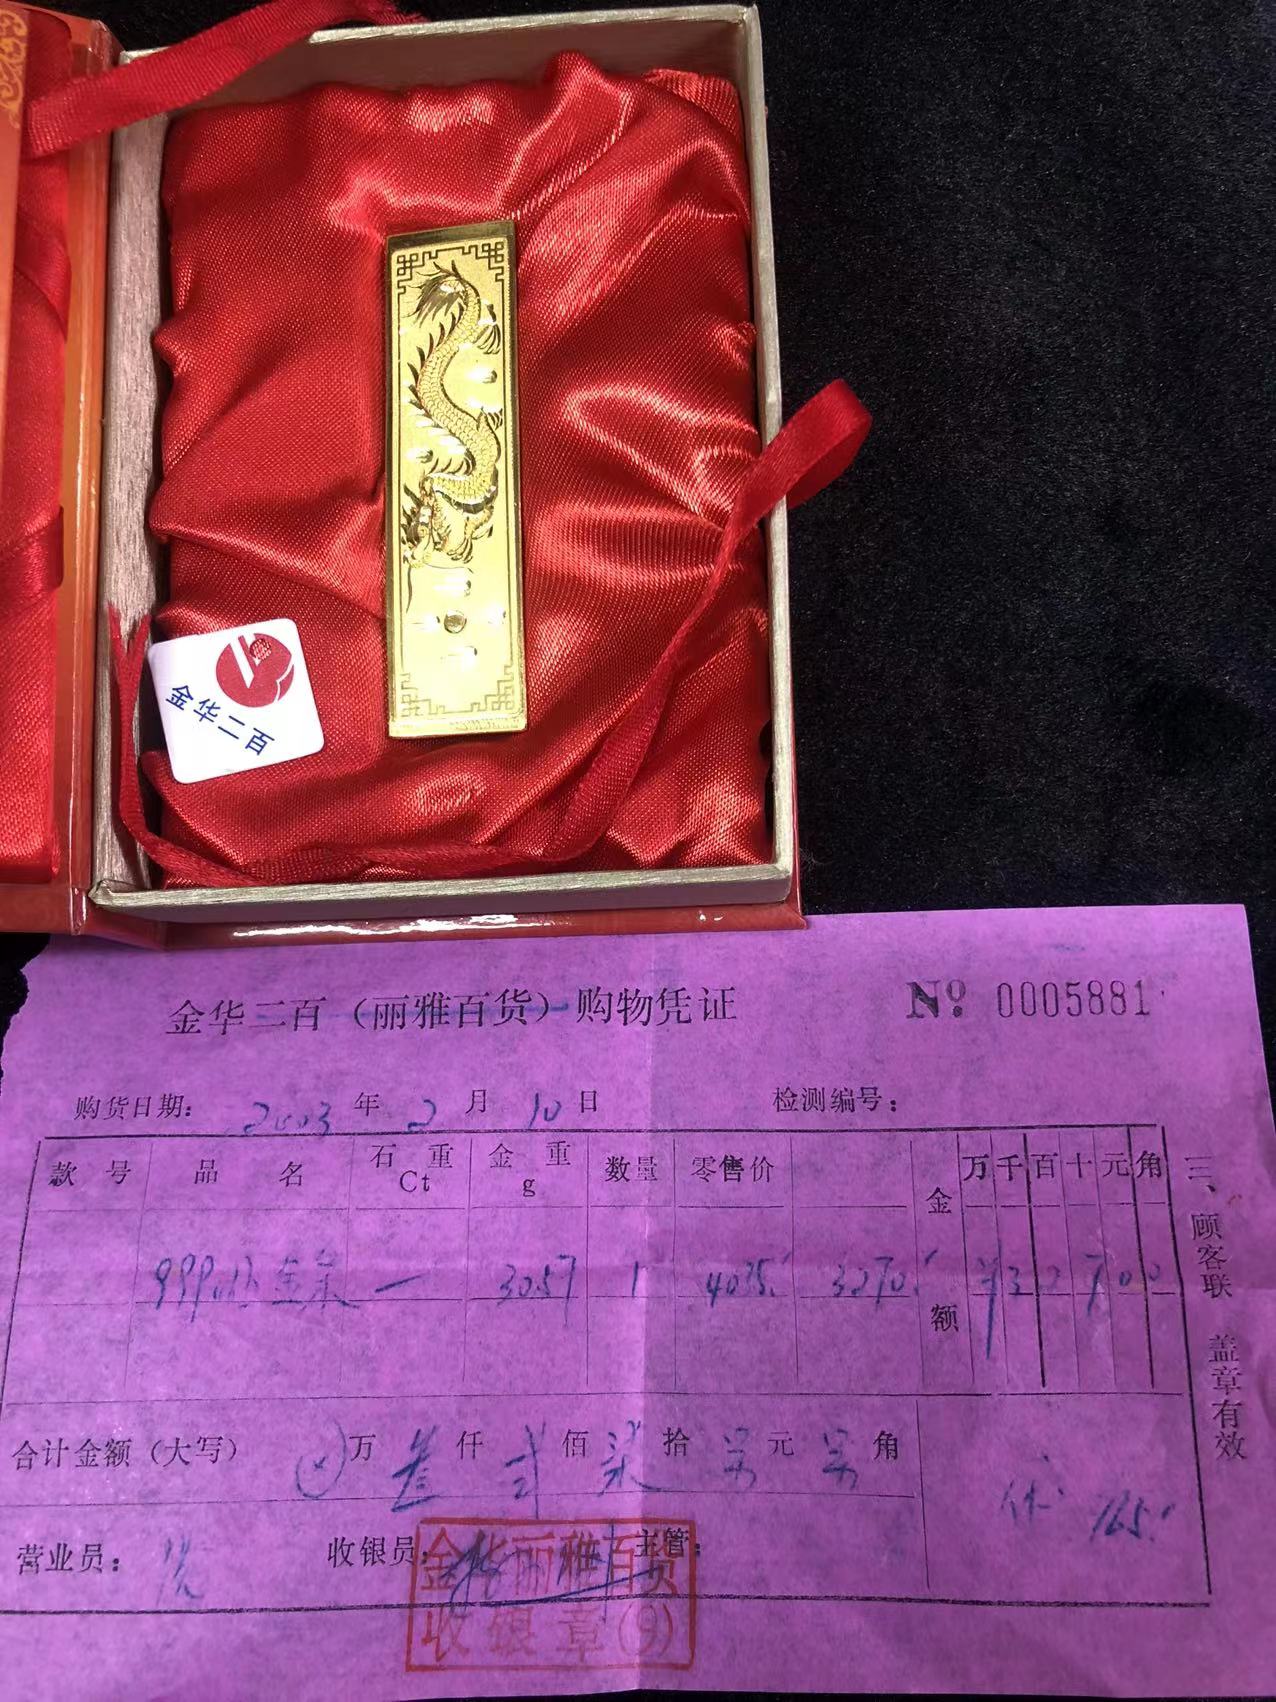 金华二百
金华二百（丽雅百货）购物凭证 № 0005881
购货日期：2003年2月10日 检测编号：
款号 品名 石重Ct 金重g 数量 零售价 金额 万千百十元角
一 30.57 1 4035 3270 ¥327000
合计金额（大写） ⊗万叁仟贰佰柒拾零元零角
165
营业员： 收银员： 主管：
金华丽雅百货
收银章(9)
三、顾客联 盖章有效